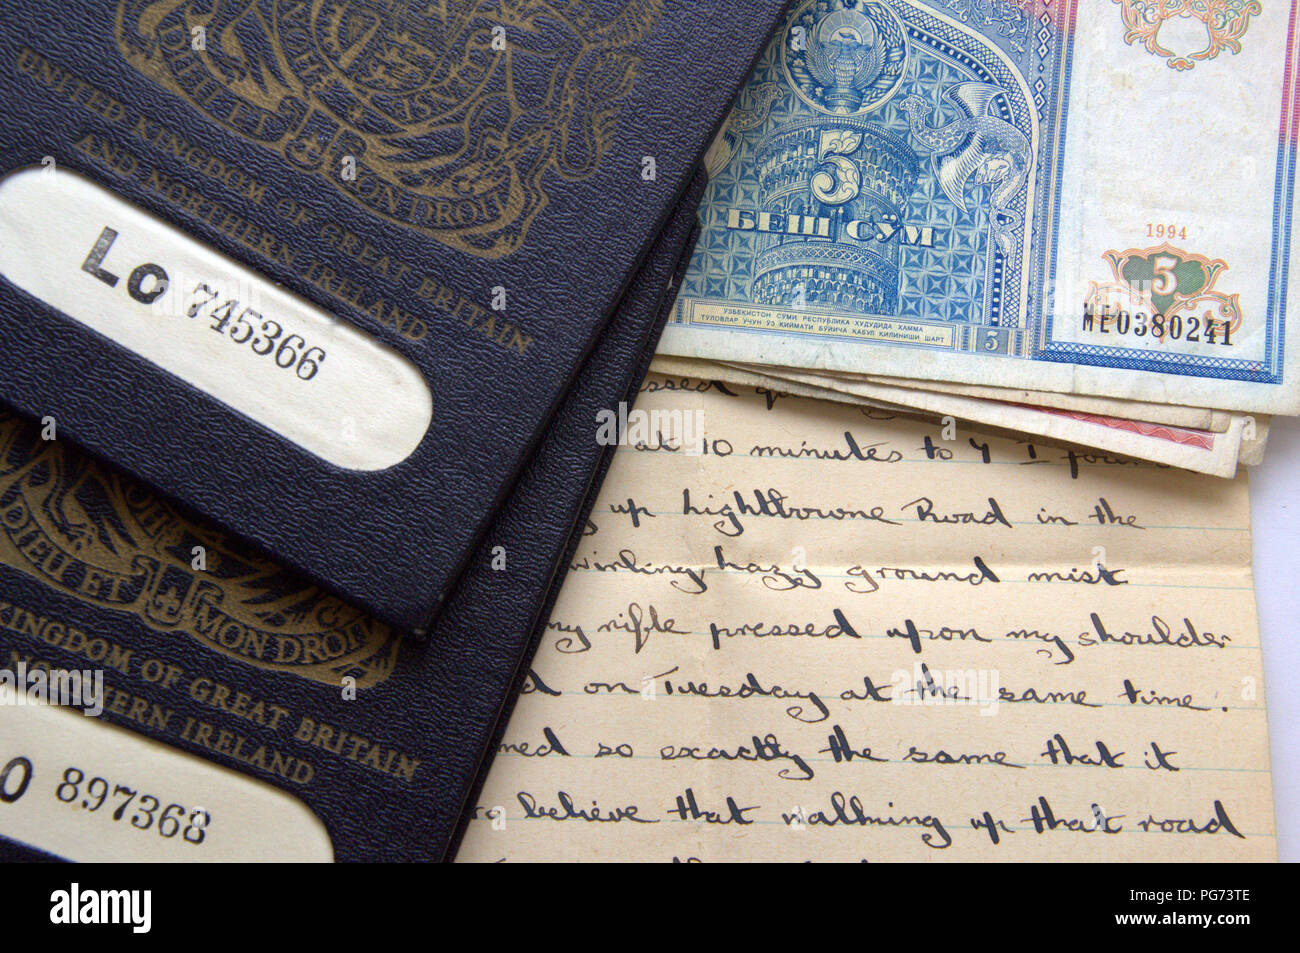 DIEU ET MON DROIT
UNITED KINGDOM OF GREAT BRITAIN
AND NORTHERN IRELAND
LO 745366
DIEU ET MON DROIT
KINGDOM OF GREAT BRITAIN
NORTHERN IRELAND
O 897368
5
БЕШ СЎМ
ЎЗБЕКИСТОН СЎМИ РЕСПУБЛИКА ХУДУДИДА ХАММА
ТУЛОВЛАР УЧУН ЎЗ КИЙМАТИ БЎЙИЧА КАБУЛ КИЛИНИШИ ШАРТ
5
1994
5
МЕ0380241
ssed
at 10 minutes to 7 I
up hightbowne Road in the
hazy ground mist
my rifle pressed upon my shoulder
on Tuesday at the same time.
med so exactly the same that it
to believe that walking up that road
alamy
Image ID: PG73TE
www.alamy.com